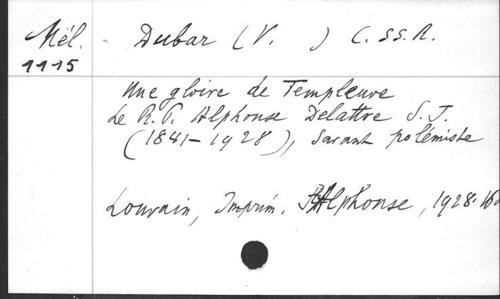 Mél. Dubar (V. ) C.SS.R.
1115
Une gloire de Templeuve
Le R.P. Alphonse Delattre S.J.
(1841-1928), savant polémiste
Louvain, Imprim. St Alphonse, 1928.